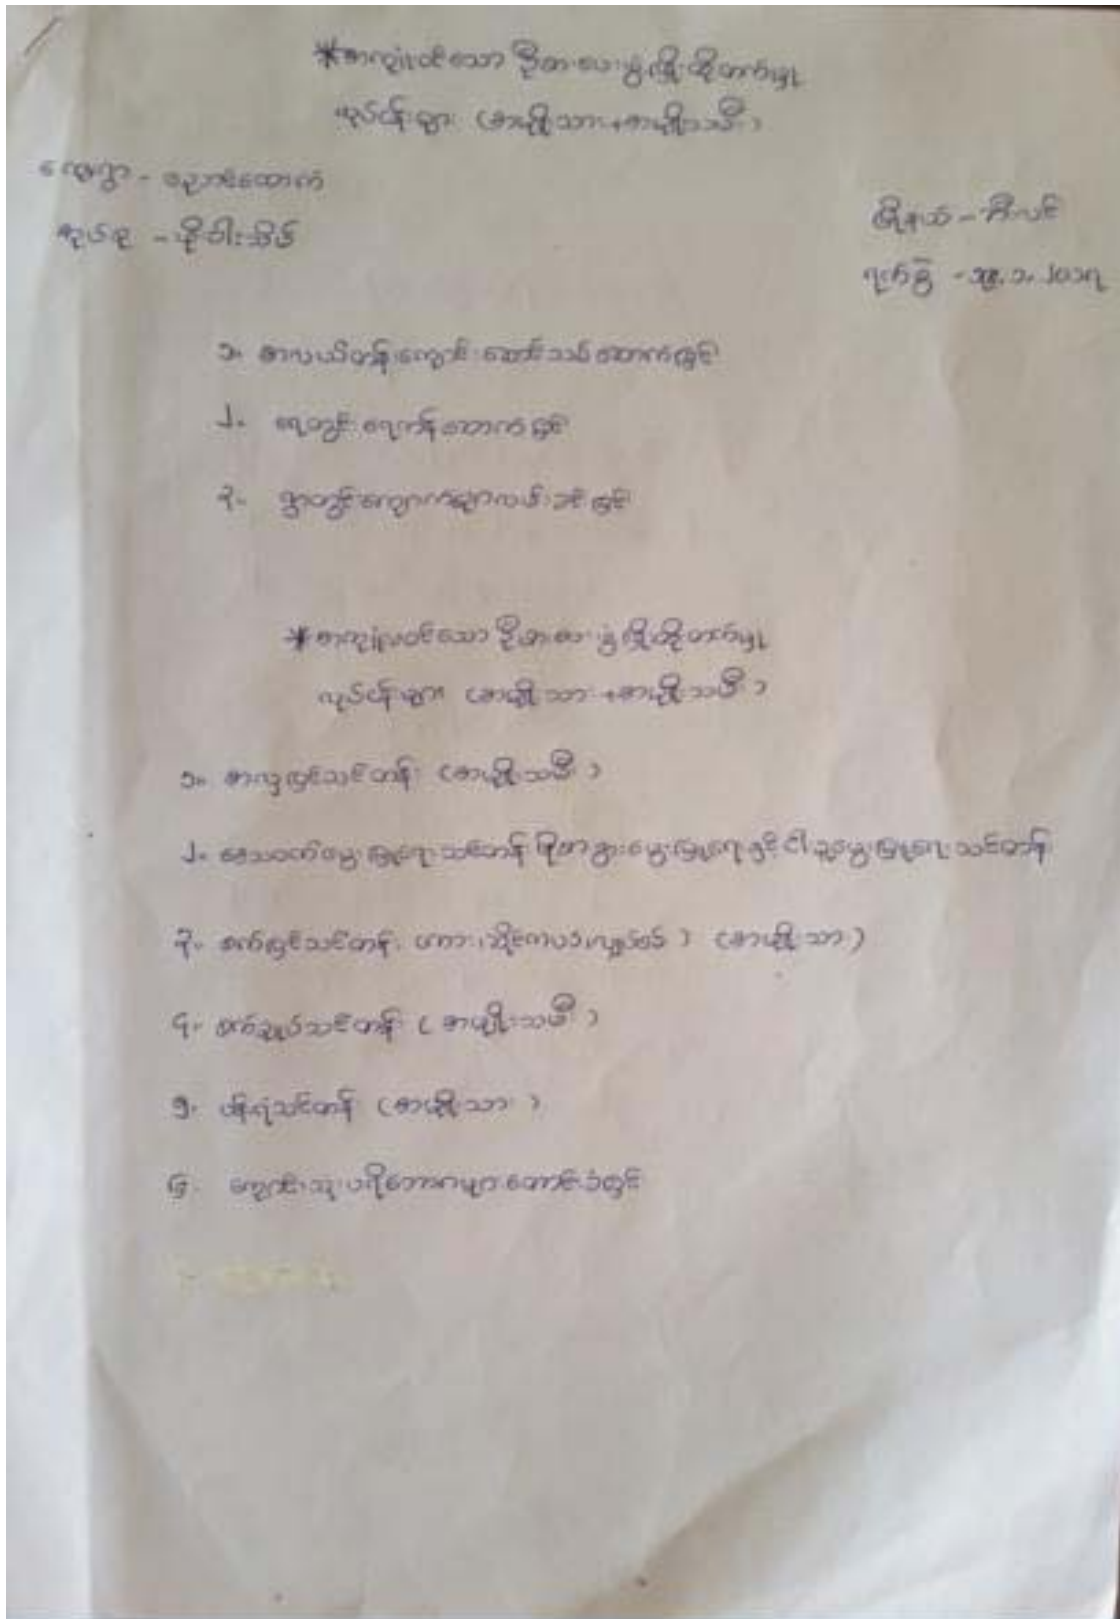 *အကျုံးဝင်သော ဦးစားပေးဖွံ့ဖြိုးတိုးတက်မှု
လုပ်ငန်းများ (အမျိုးသား+အမျိုးသမီး)
ကျေးရွာ - ညောင်ထောက်
အုပ်စု - ဖိုးဝါးသိပ်
မြို့နယ် - ဘီးလင်း
ရက်စွဲ - ၁၉.၁.၂၀၁၇
၁။ စာသင်ကျောင်းဆောင်သစ်ဆောက်ခြင်း
၂။ ရေတွင်းရေကန်ဆောက်ခြင်း
၃။ ရွာတွင်းကျောက်ချောလမ်းခင်းခြင်း
*အကျုံးမဝင်သော ဦးစားပေးဖွံ့ဖြိုးတိုးတက်မှု
လုပ်ငန်းများ (အမျိုးသား+အမျိုးသမီး)
၁။ အလှပြင်သင်တန်း (အမျိုးသမီး)
၂။ ဝက်မွေးမြူရေးသင်တန်း မွေးမြူရေးနှင့် ငါးမွေးမြူရေးသင်တန်း
၃။ စက်ပြင်သင်တန်း (ကား၊ ဆိုင်ကယ်၊ လျှပ်စစ်) (အမျိုးသား)
၄။ စက်ချုပ်သင်တန်း (အမျိုးသမီး)
၅။ ပန်းရံသင်တန်း (အမျိုးသား)
၆။ ကျောင်းသုံးပရိဘောဂများတောင်းခံခြင်း